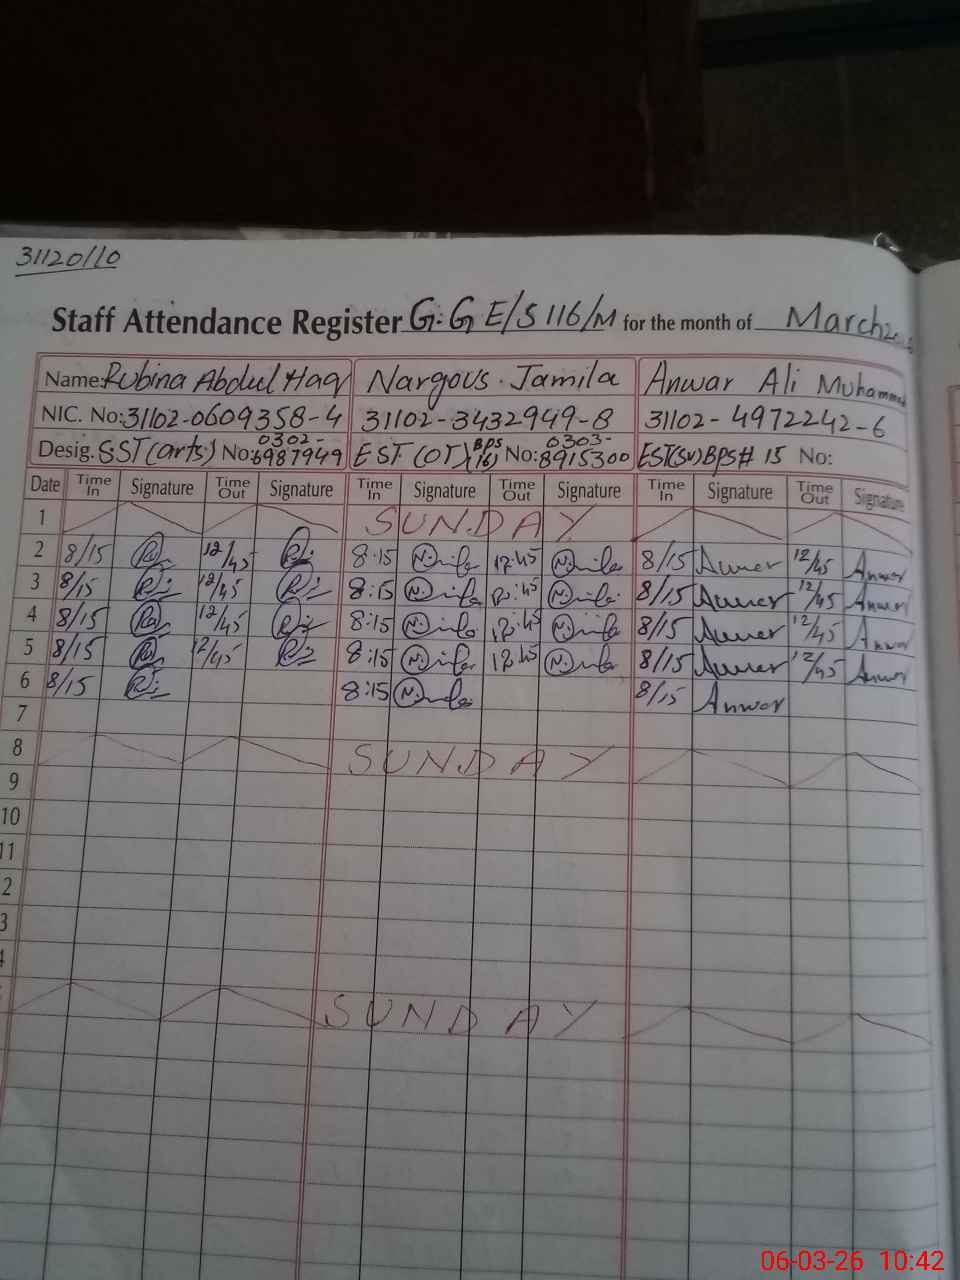 31120110
Staff Attendance Register G.G E/S 116/M for the month of March
Name: Rubina Abdul Haq Nargous Jamila Anwar Ali Muhammad
NIC. No: 31102-0609358-4 31102-3432949-8 31102-4972242-6
Desig. SST (arts) No: 0302-6987949 EST (OT) (BPS 16) No: 0303-8915300 EST(SV) BPS# 15 No:
Date Time In Signature Time Out Signature Time In Signature Time Out Signature Time In Signature Time Out Signature
1 SUNDAY
2 8/15 12/45 8:15 12:45 8/15 Anwer 12/45 Anwer
3 8/15 12/45 8:15 12:45 8/15 Anwer 12/45 Anwer
4 8/15 12/45 8:15 12:45 8/15 Anwer 12/45 Anwer
5 8/15 12/45 8:15 12:45 8/15 Anwer 12/45 Anwer
6 8/15 8:15 8/15 Anwer
7
8 SUNDAY
9
10
11
2
3
4
SUNDAY
06-03-26 10:42